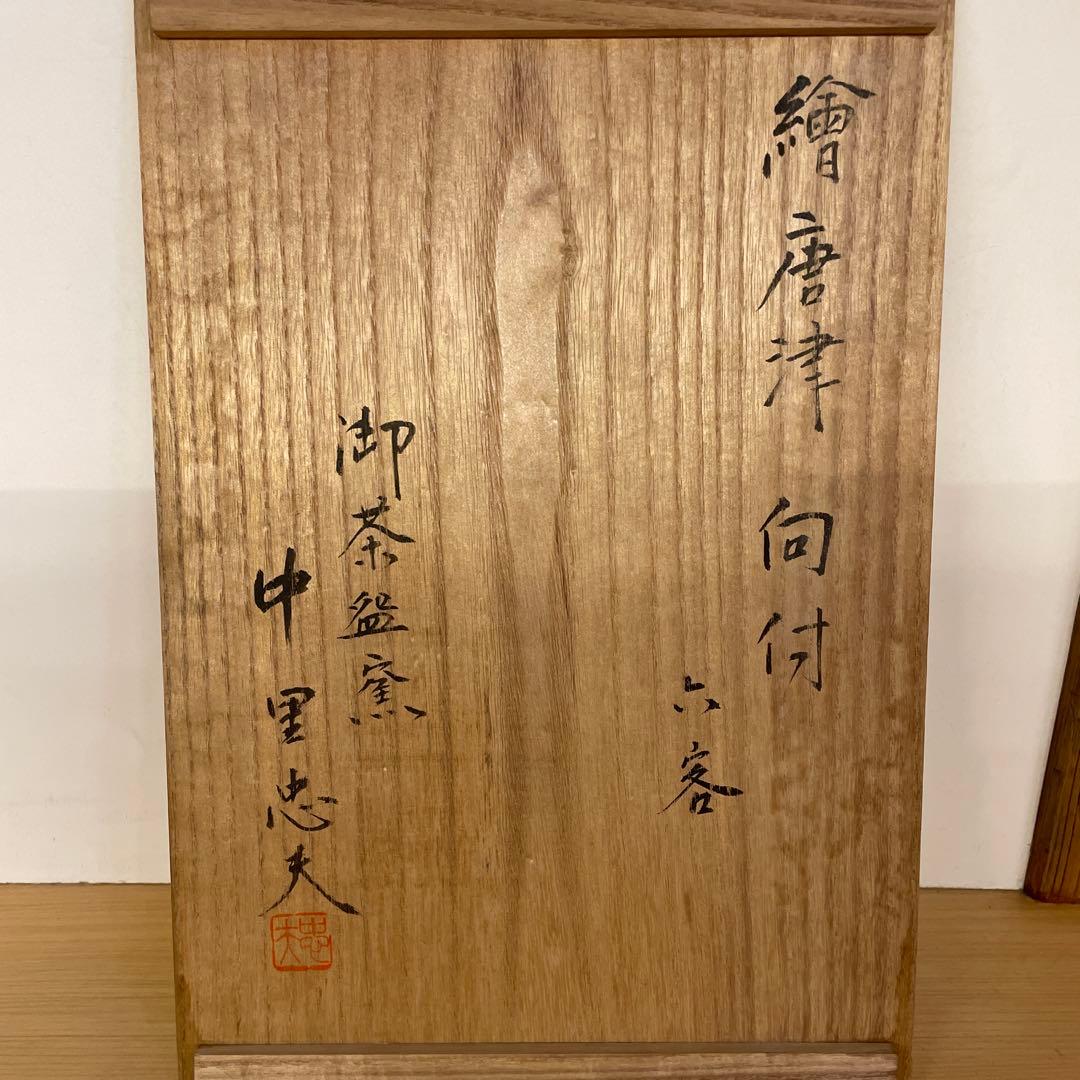 繪唐津 向付
六客
御茶盌窯
中里忠夫
忠夫